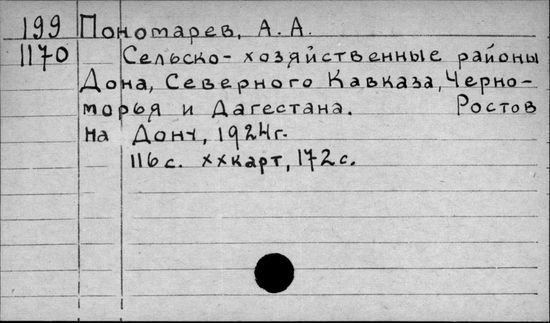 199 Пономарев, А. А.
1170 Сельско-хозяйственные районы
Дона, Северного Кавказа, Черно-
морья и Дагестана. Ростов
на Дону, 1924г.
116с. xxкарт, 172с.